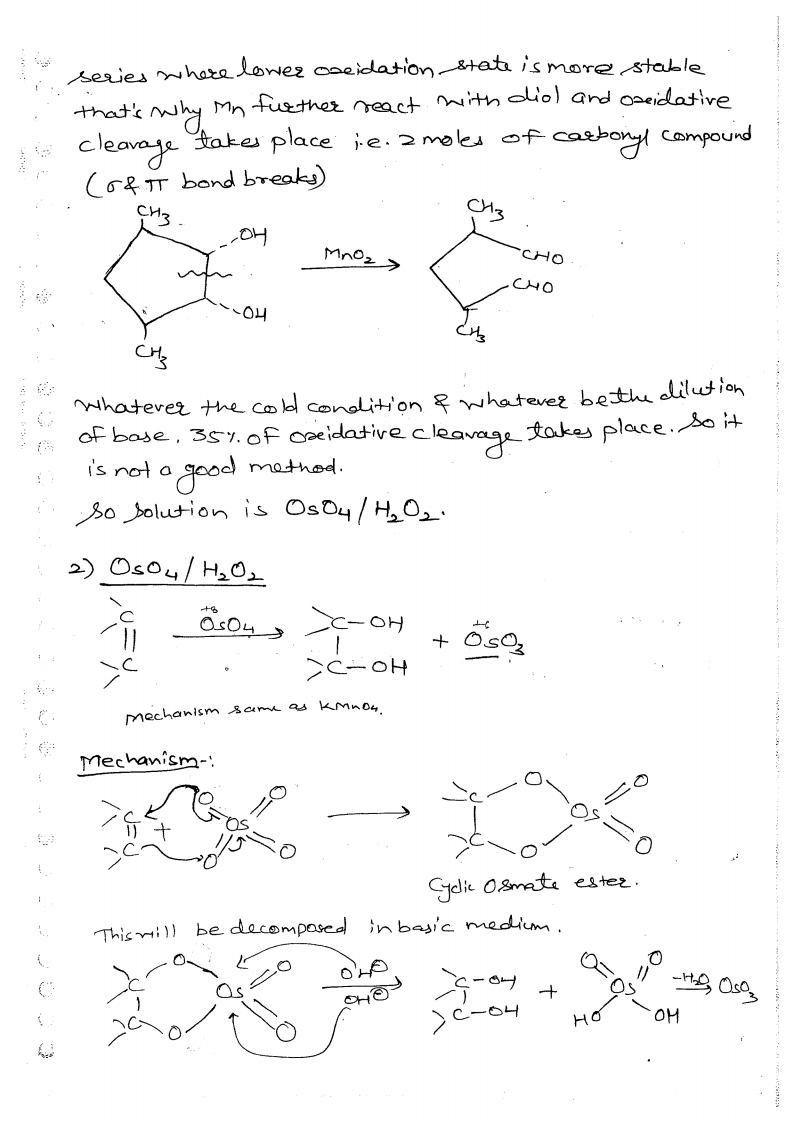 series where lower oxidation state is more stable
that's why Mn further react with diol and oxidative
cleavage takes place i.e. 2 moles of carbonyl compound
(σ & π bond breaks)
CH3
OH
OH
CH3
MnO2
CH3
CHO
CHO
CH3
Whatever the cold condition & whatever be the dilution
of base, 35% of oxidative cleavage takes place. So it
is not a good method.
So solution is OsO4/H2O2.
2) OsO4/H2O2
C
||
C
+8
OsO4
C-OH
C-OH
+
+6
OsO3
Mechanism same as KMnO4.
Mechanism-:
C
||
C
+
O
O
Os
O
O
C
C
O
O
Os
O
O
Cyclic Osmate ester.
This will be decomposed in basic medium.
C
C
O
O
Os
O
O
OH⊖
OH⊖
C-OH
C-OH
+
O
O
Os
HO
OH
-H2O
OsO3